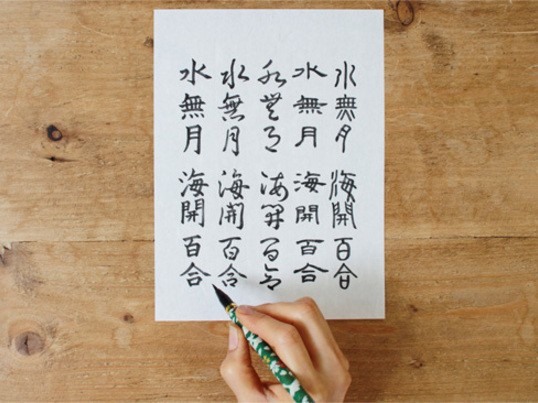 水無月 海開 百合
水無月 海開 百合
水無月 海開 百合
水無月 海開 百合
水無月 海開 百合